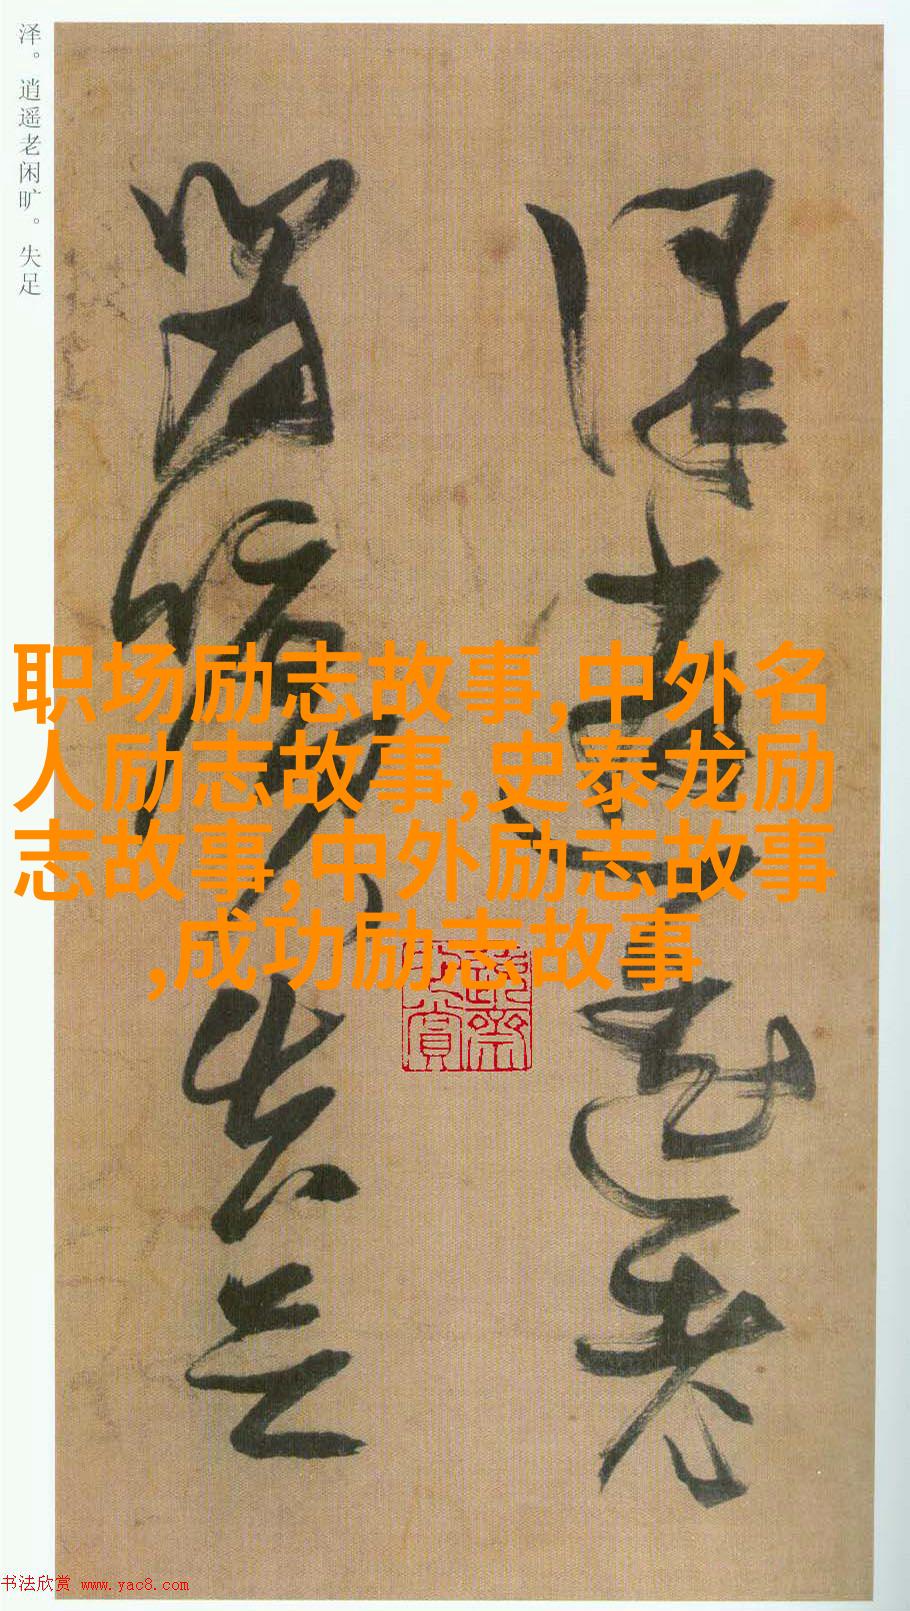 泽。逍遥老闲旷。失足
泽逍遥老
闲旷失足
职场励志故事,中外名
人励志故事,史泰龙励
志故事,中外励志故事
,成功励志故事
书法欣赏 www.yac8.com